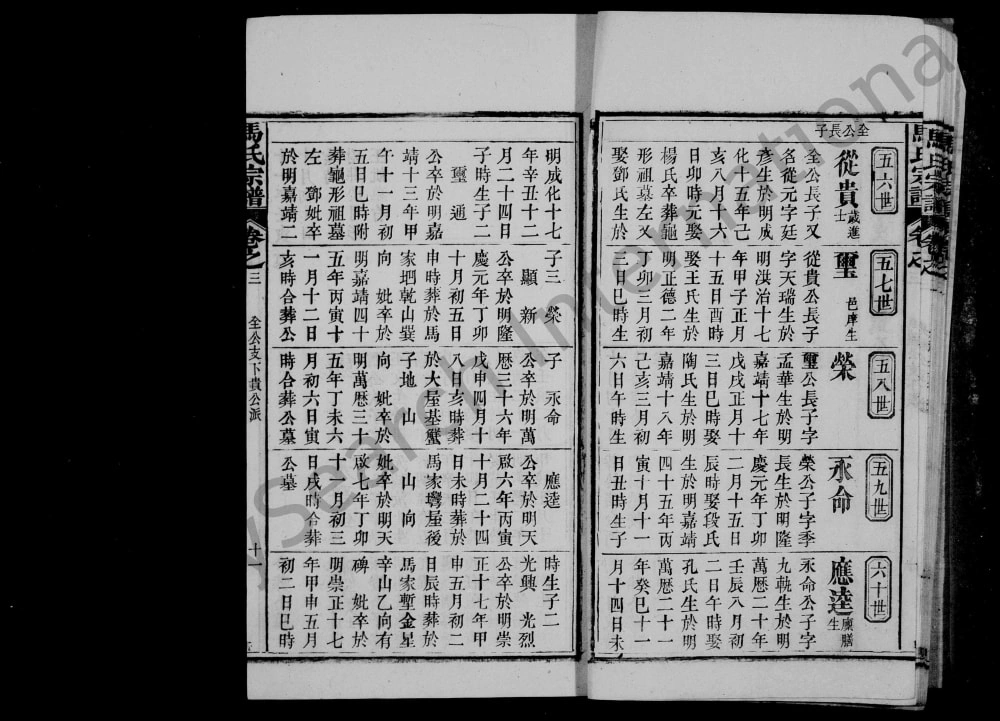 馬氏宗譜 卷之
全公長子
五六世
從貴 歲進士
全公長子又
名從元字廷
彥生於明成
化十五年己
亥八月十六
日卯時元娶
楊氏卒葬龜
形祖墓左又
娶鄧氏生於
五七世
璽 邑庠生
從貴公長子
字天瑞生於
明洪治十七
年甲子正月
十五日酉時
娶王氏生於
明正德二年
丁卯三月初
三日巳時生
五八世
榮
璽公長子字
孟華生於明
嘉靖十七年
戊戌正月十
三日巳時娶
陶氏生於明
嘉靖十八年
己亥三月初
六日午時生
五九世
永命
榮公子字季
長生於明隆
慶元年丁卯
二月十五日
辰時娶段氏
生於明嘉靖
四十五年丙
寅十月十一
日丑時生子
六十世
應逵 廩膳生
永命公子字
九軌生於明
萬歷二十年
壬辰八月初
二日午時娶
孔氏生於明
萬歷二十一
年癸巳十一
月十四日未
明成化十七
年辛丑十二
月二十四日
子時生子二
璽 通
公卒於明嘉
靖十三年甲
午十一月初
五日巳時附
葬龜形祖墓
左 鄧妣卒
於明嘉靖二
子三 榮
顯 新
公卒於明隆
慶元年丁卯
十月初五日
申時葬於馬
家垇乾山巽
向 妣卒於
明嘉靖四十
五年丙寅十
一月十二日
亥時合葬公
子 永命
公卒於明萬
歷三十六年
戊申四月十
八日亥時葬
於大屋基蟹
子地 山
向 妣卒於
明萬歷三十
五年丁未六
月初六日寅
時合葬公墓
應逵
公卒於明天
啟六年丙寅
十月二十四
日未時葬於
馬家塆屋後
山 向
妣卒於明天
啟七年丁卯
十一月初三
日戌時合葬
公墓
時生子二
光興 光烈
公卒於明崇
正十七年甲
申五月初二
日辰時葬於
馬家塹金星
辛山乙向有
碑 妣卒於
明崇正十七
年甲申五月
初二日巳時
馬氏宗譜 卷之三 全公支下貴公派 十一